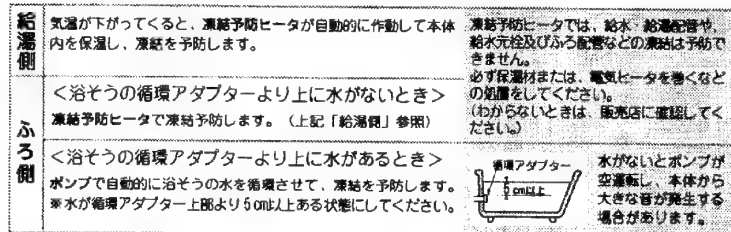 給湯側
気温が下がってくると、凍結予防ヒータが自動的に作動して本体
内を保温し、凍結を予防します。
凍結予防ヒータでは、給水・給湯配管や、
給水元栓及びふろ配管などの凍結は予防で
きません。
必ず保温材または、電気ヒータを巻くなど
の処置をしてください。
(わからないときは、販売店に確認してく
ださい。)
ふろ側
<浴そうの循環アダプターより上に水がないとき>
凍結予防ヒータで凍結予防します。(上記「給湯側」参照)
<浴そうの循環アダプターより上に水があるとき>
ポンプで自動的に浴そうの水を循環させて、凍結を予防します。
※水が循環アダプター上部より5cm以上ある状態にしてください。
循環アダプター
5cm以上
水がないとポンプが
空運転し、本体から
大きな音が発生する
場合があります。